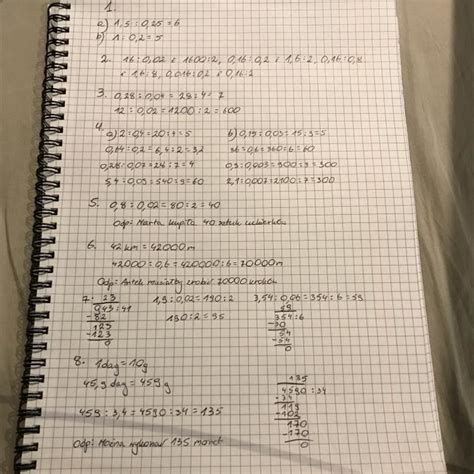 1.
a) 1,5 : 0,25 = 6
b) 1 : 0,2 = 5
2. 16 : 0,02 i 1600 : 2, 0,16 : 0,2 i 1,6 : 2, 0,16 : 0,8
i 1,6 : 8, 0,016 : 0,2 i 0,16 : 2
3. 0,28 : 0,04 = 28 : 4 = 7
12 : 0,02 = 1200 : 2 = 600
4. a) 2 : 0,4 = 20 : 4 = 5 b) 0,15 : 0,03 = 15 : 3 = 5
0,64 : 0,2 = 6,4 : 2 = 3,2 36 : 0,6 = 360 : 6 = 60
0,28 : 0,07 = 28 : 7 = 4 0,9 : 0,003 = 900 : 3 = 300
5,4 : 0,09 = 540 : 9 = 60 2,1 : 0,007 = 2100 : 7 = 300
5. 0,8 : 0,02 = 80 : 2 = 40
Odp: Marta kupiła 40 sztuk cukierków
6. 42 km = 42000 m
42000 : 0,6 = 420000 : 6 = 70000 m
Odp: Antek musiałby zrobić 70000 kroków
7. 23 1,9 : 0,02 = 190 : 2 3,54 : 0,06 = 354 : 6 = 59
943 : 41 59
-82 190 : 2 = 95 354 : 6
123 -30
-123 54
0 -54
0
8. 1 dag = 10 g
45,9 dag = 459 g 135
4590 : 34
459 : 3,4 = 4590 : 34 = 135 -34
119
-102
170
-170
Odp: Można wykonać 135 monet 0